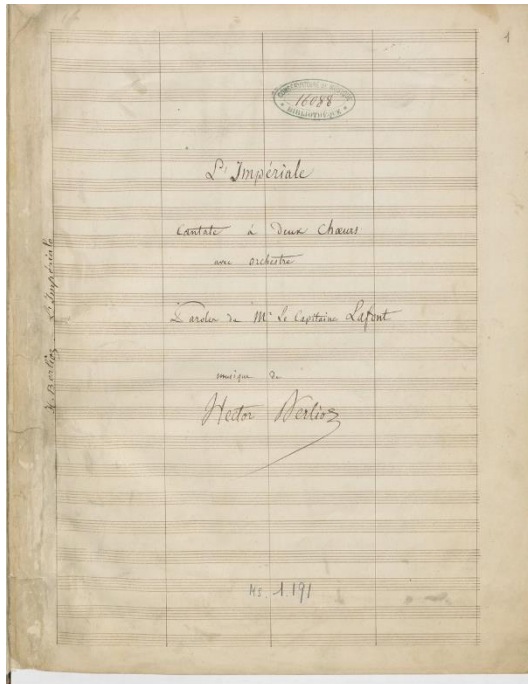 1
CONSERVATOIRE DE MUSIQUE
16088
BIBLIOTHÈQUE
L'Impériale
Cantate à Deux Chœurs
avec orchestre
Paroles de Mr Le Capitaine Lafont
musique de
Hector Berlioz
H. Berlioz L'Impériale
MS. 1.191